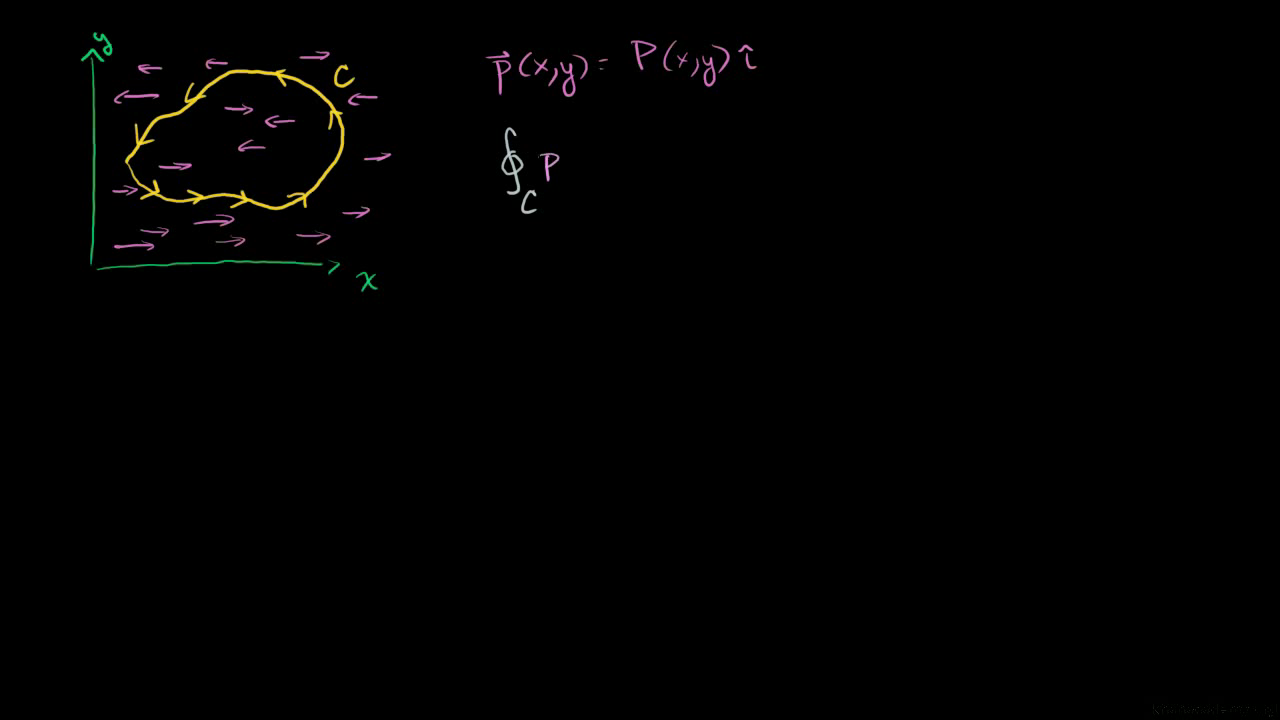 y
C
x
p⃗(x,y) = P(x,y) î
∮
C
P